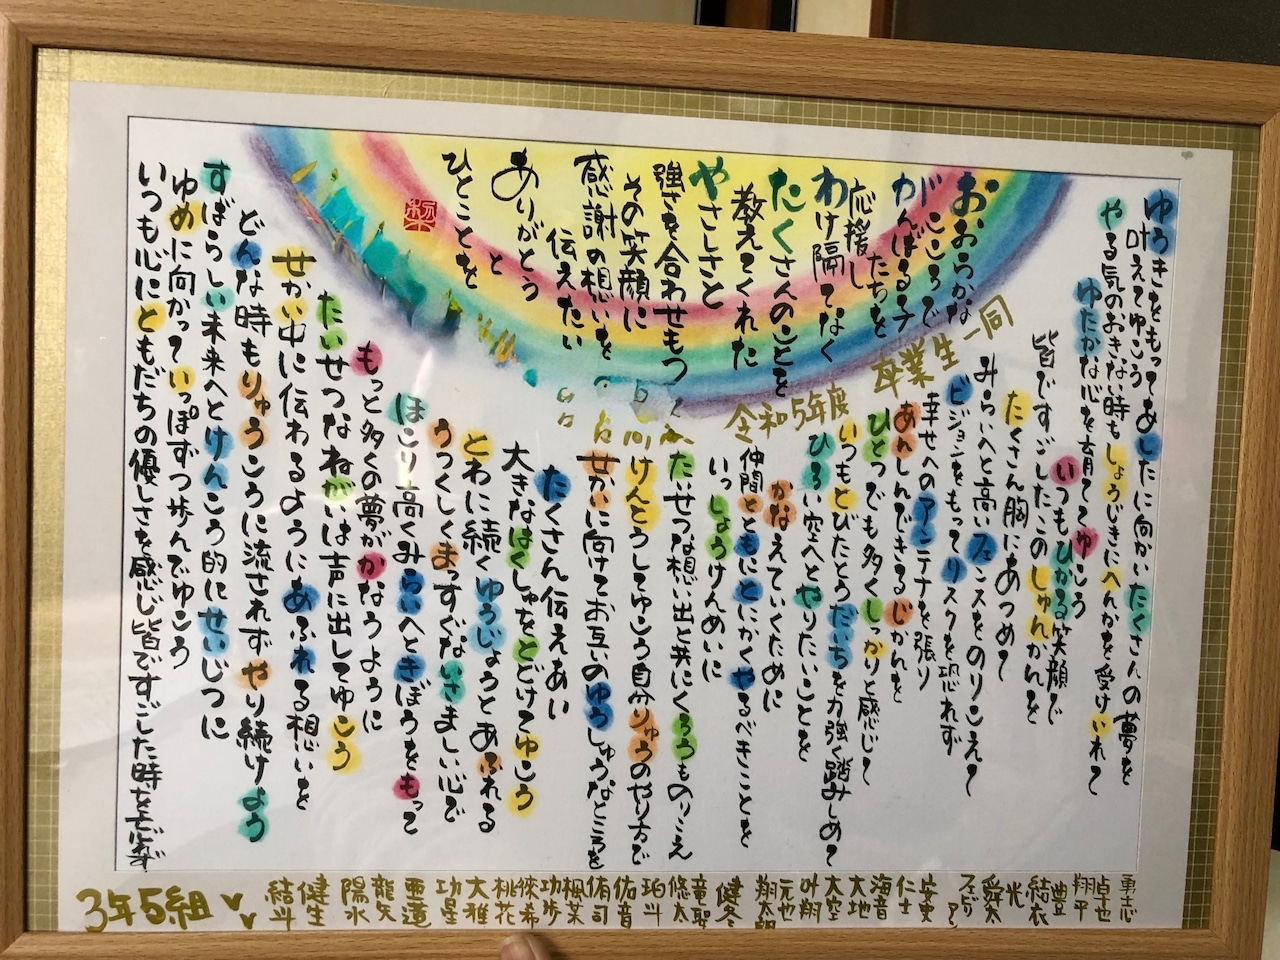 ゆうきをもってあしたに向かいたくさんの夢を
叶えてゆこう
やる気のおきない時もしょうじきにへんかを受けいれて
ゆたかな心を育ててゆこう
いつもひかる笑顔で
皆ですごしたこのしゅんかんを
たくさん胸にあつめて
みらいへと高いフェンスをのりこえて
ビジョンをもってリスクを恐れず
幸せへのアンテナを張り
あんしんできるじかんを
ひとつでも多くしっかりと感じて
いつもとびたとうだいちを力強く踏みしめて
ひろい空へとやりたいことを
かなえていくために
仲間とともにとにかくやるべきことを
いっしょうけんめいに
たいせつな想い出と共にくろうものりこえ
けんとうしてゆこう自分りゅうのやり方で
せかいに向けてお互いのゆうしゅうなところを
たくさん伝えあい
大きなはくしゅをとどけてゆこう
とわに続くゆうじょうとあふれる
うつくしくまっすぐないさましい心で
ほこり高くみらいへときぼうをもって
もっと多くの夢がかなうように
たいせつなねがいは声に出してゆこう
せかい中に伝わるようにあふれる想いを
どんな時もりゅうこうに流されずやり続けよう
すばらしい未来へとけんこう的にせいじつに
ゆめに向かっていっぽずつ歩んでゆこう
いつも心にともだちの優しさを感じ皆ですごした時を忘れず
おおらかな
こころで
がんばる子
たちを
応援し
わけ隔てなく
たくさんのことを
教えてくれた
やさしさと
強さを合わせもつ
その笑顔に
感謝の想いを
伝えたい
ありがとう
と
ひとことを
令和5年度 卒業生一同
勇志
卓也
翔平
豊
結衣
光
舜太
フェビリアン
安吏
仁士
海音
大地
大空
叶翔
元也
翔太朗
健冬
竜聖
悠太
珀斗
佑音
侑司
楓菜
功歩
徠希
桃花
大雅
功星
亜蓮
龍矢
陽水
健生
結斗
3年5組